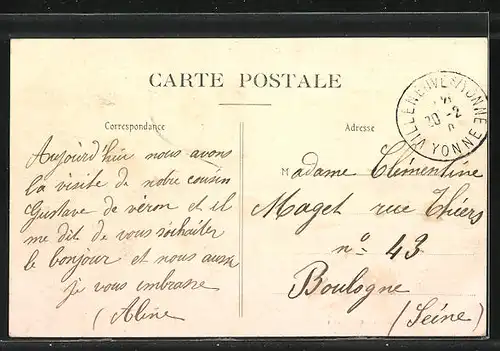 CARTE POSTALE
Correspondance
Aujourd'hui nous avons
la visite de notre cousin
Gustave de véron et il
me dit de vous souhaiter
le bonjour et nous aussi
je vous embrasse
(Aline
Adresse
Madame Clémentine
Maget rue Thiers
n° 43
Boulogne
(Seine)
VILLENEUVE-S-YONNE
20 - 2
YONNE